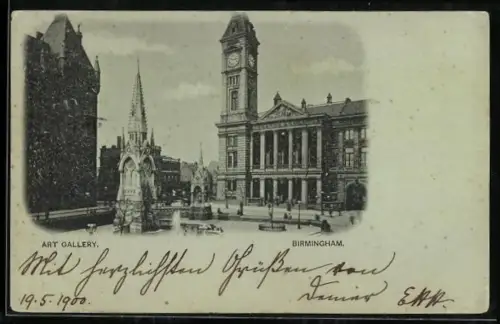 ART GALLERY. BIRMINGHAM.
Mit herzlichsten Grüßen von
19.5.1900. Deiner